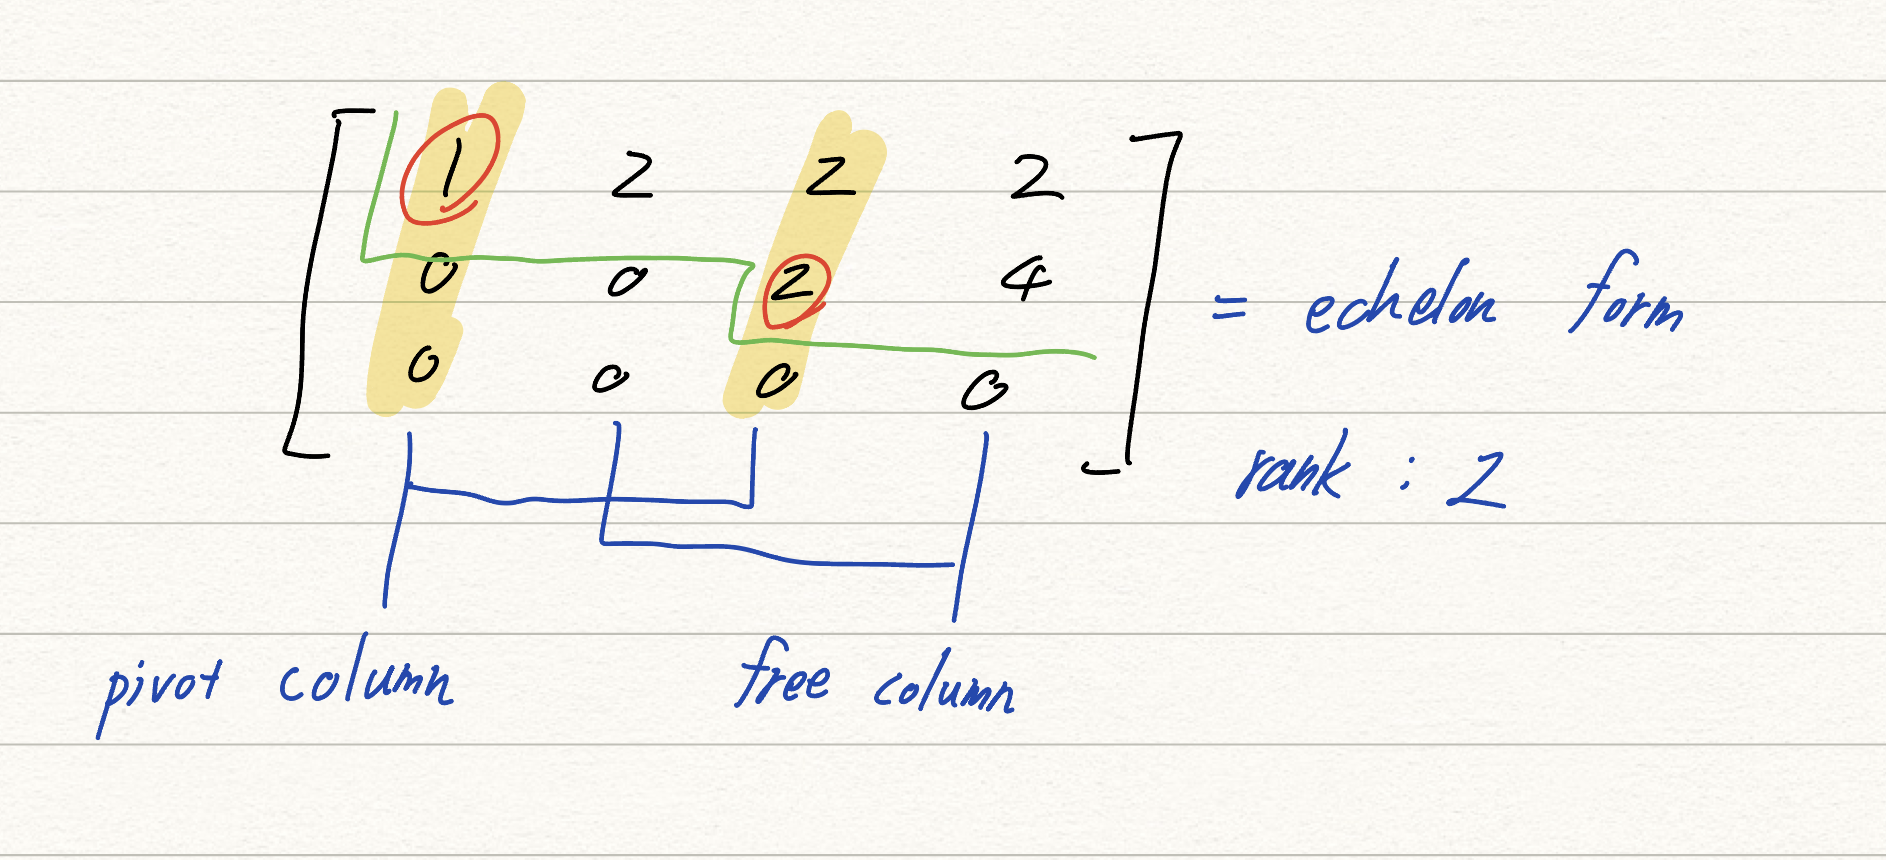 1 2 2 2
0 0 2 4
= echelon form
0 0 0 0
rank : 2
pivot column free column